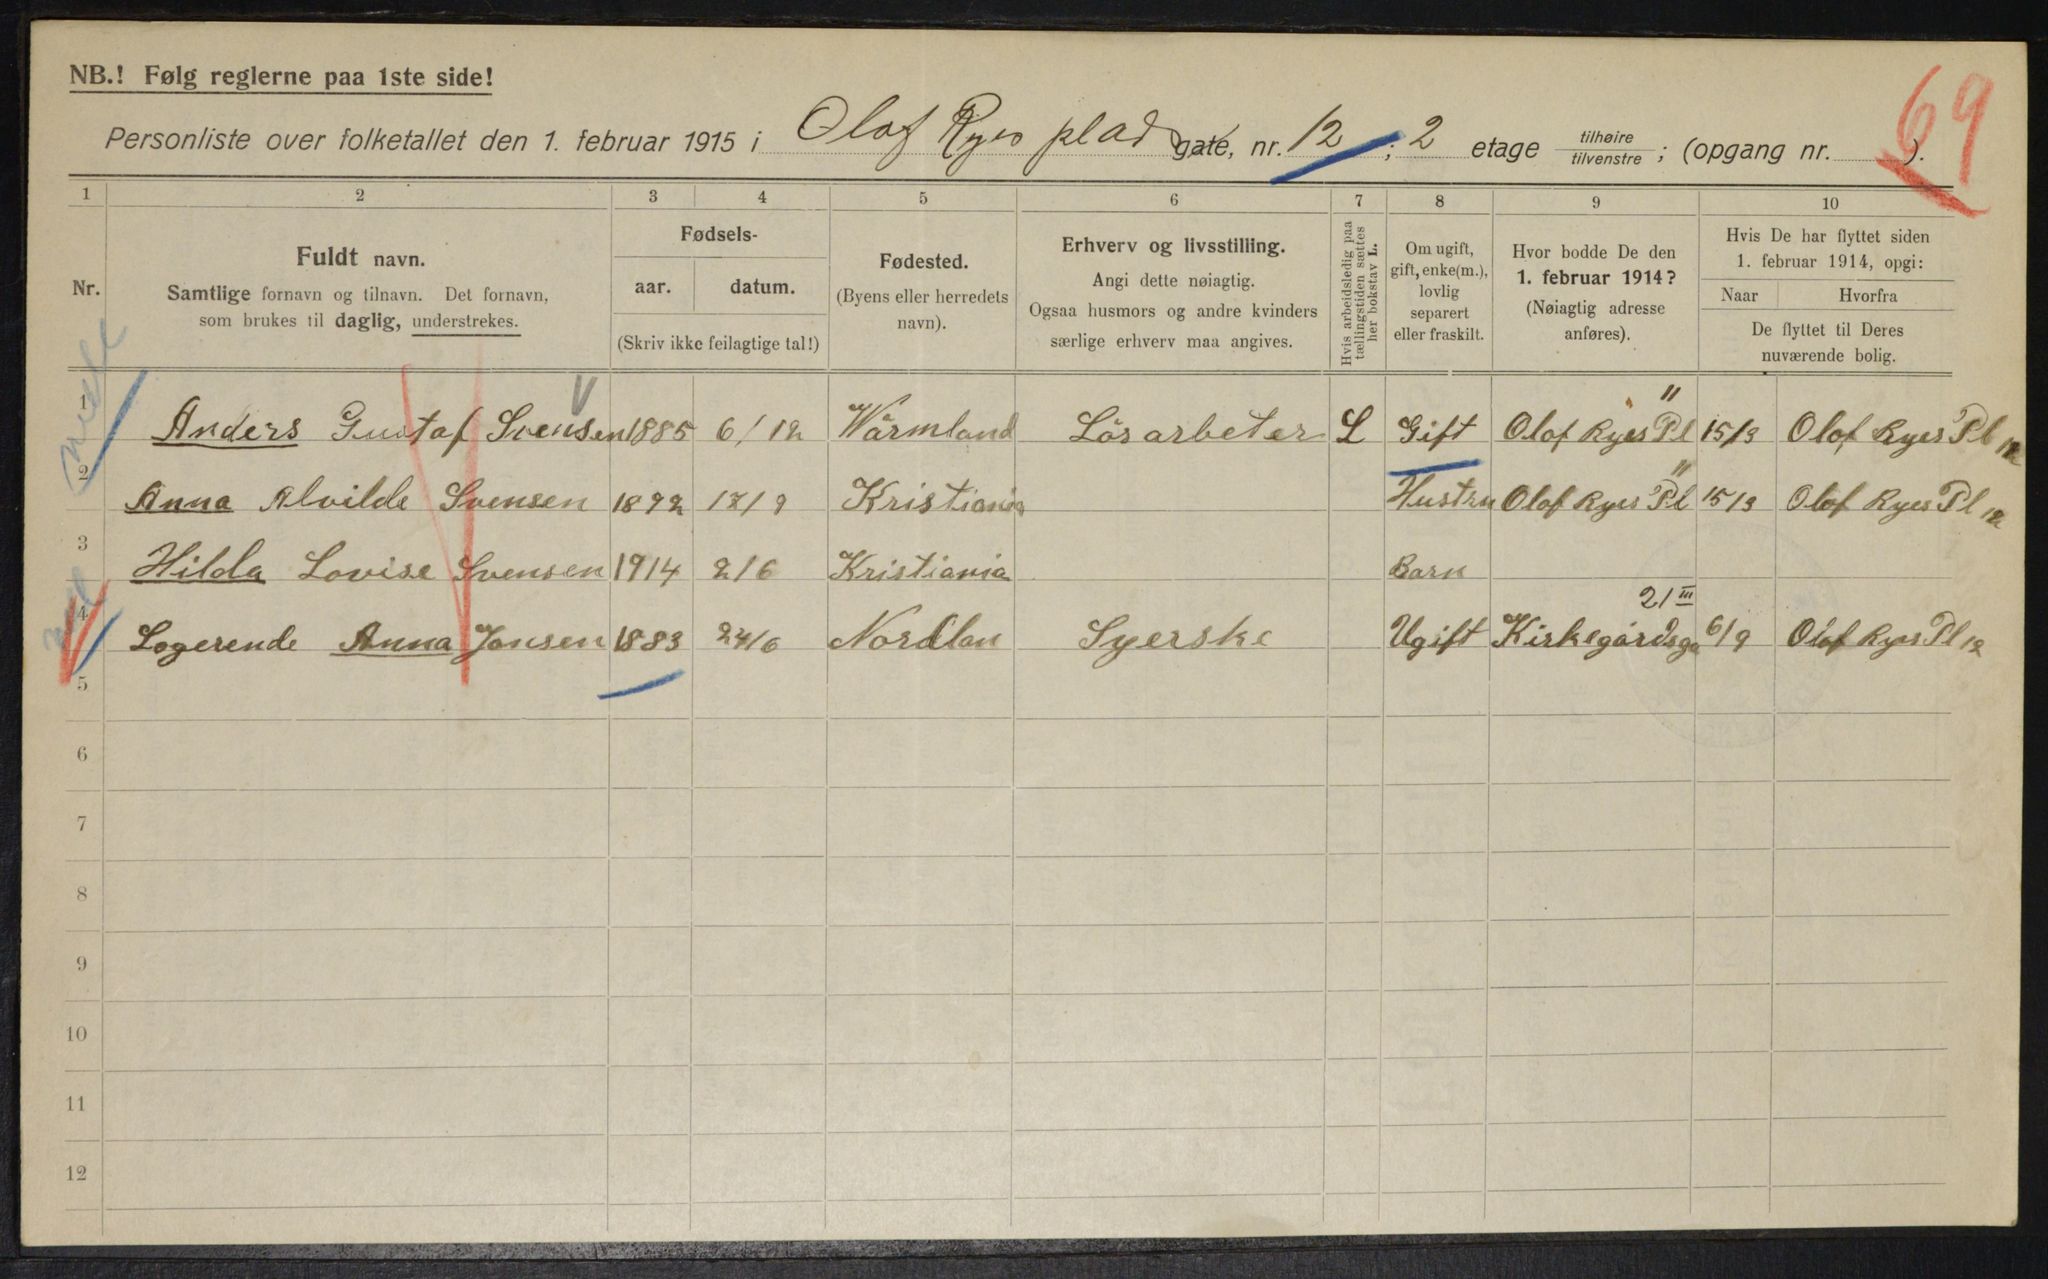 NB.! Følg reglerne paa 1ste side!
69
Personliste over folketallet den 1. februar 1915 i Olaf Ryes plads gate, nr. 12 ; 2 etage tilhøire tilvenstre ; (opgang nr. ).
1 2 3 4 5 6 7 8 9 10
Nr.
Fuldt navn.
Samtlige fornavn og tilnavn. Det fornavn,
som brukes til daglig, understrekes.
Fødsels-
aar. datum.
(Skriv ikke feilagtige tal!)
Fødested.
(Byens eller herredets
navn).
Erhverv og livsstilling.
Angi dette nøiagtig.
Ogsaa husmors og andre kvinders
særlige erhverv maa angives.
Hvis arbeidsledig paa
tællingstiden sættes
her bokstav L.
Om ugift,
gift, enke(m.),
lovlig
separert
eller fraskilt.
Hvor bodde De den
1. februar 1914?
(Nøiagtig adresse
anføres).
Hvis De har flyttet siden
1. februar 1914, opgi:
Naar Hvorfra
De flyttet til Deres
nuværende bolig.
1 Anders Gustaf Svensen 1885 6/12 Wärmland Lösarbeter L Gift Olaf Ryes Pl " 15/3 Olaf Ryes Pl 12
2 Anna Alvilde Svensen 1892 Kristiania Hustru Olaf Ryes Pl " 15/3 Olaf Ryes Pl 12
3 Hilda Lovise Svensen 1914 2/6 Kristiania Barn
4 Logerende Anna Jonsen 1883 24/6 Nordlan Syerske Ugift Kirkegårdsga 21 III 6/9 Olaf Ryes Pl 12
5
6
7
8
9
10
11
12